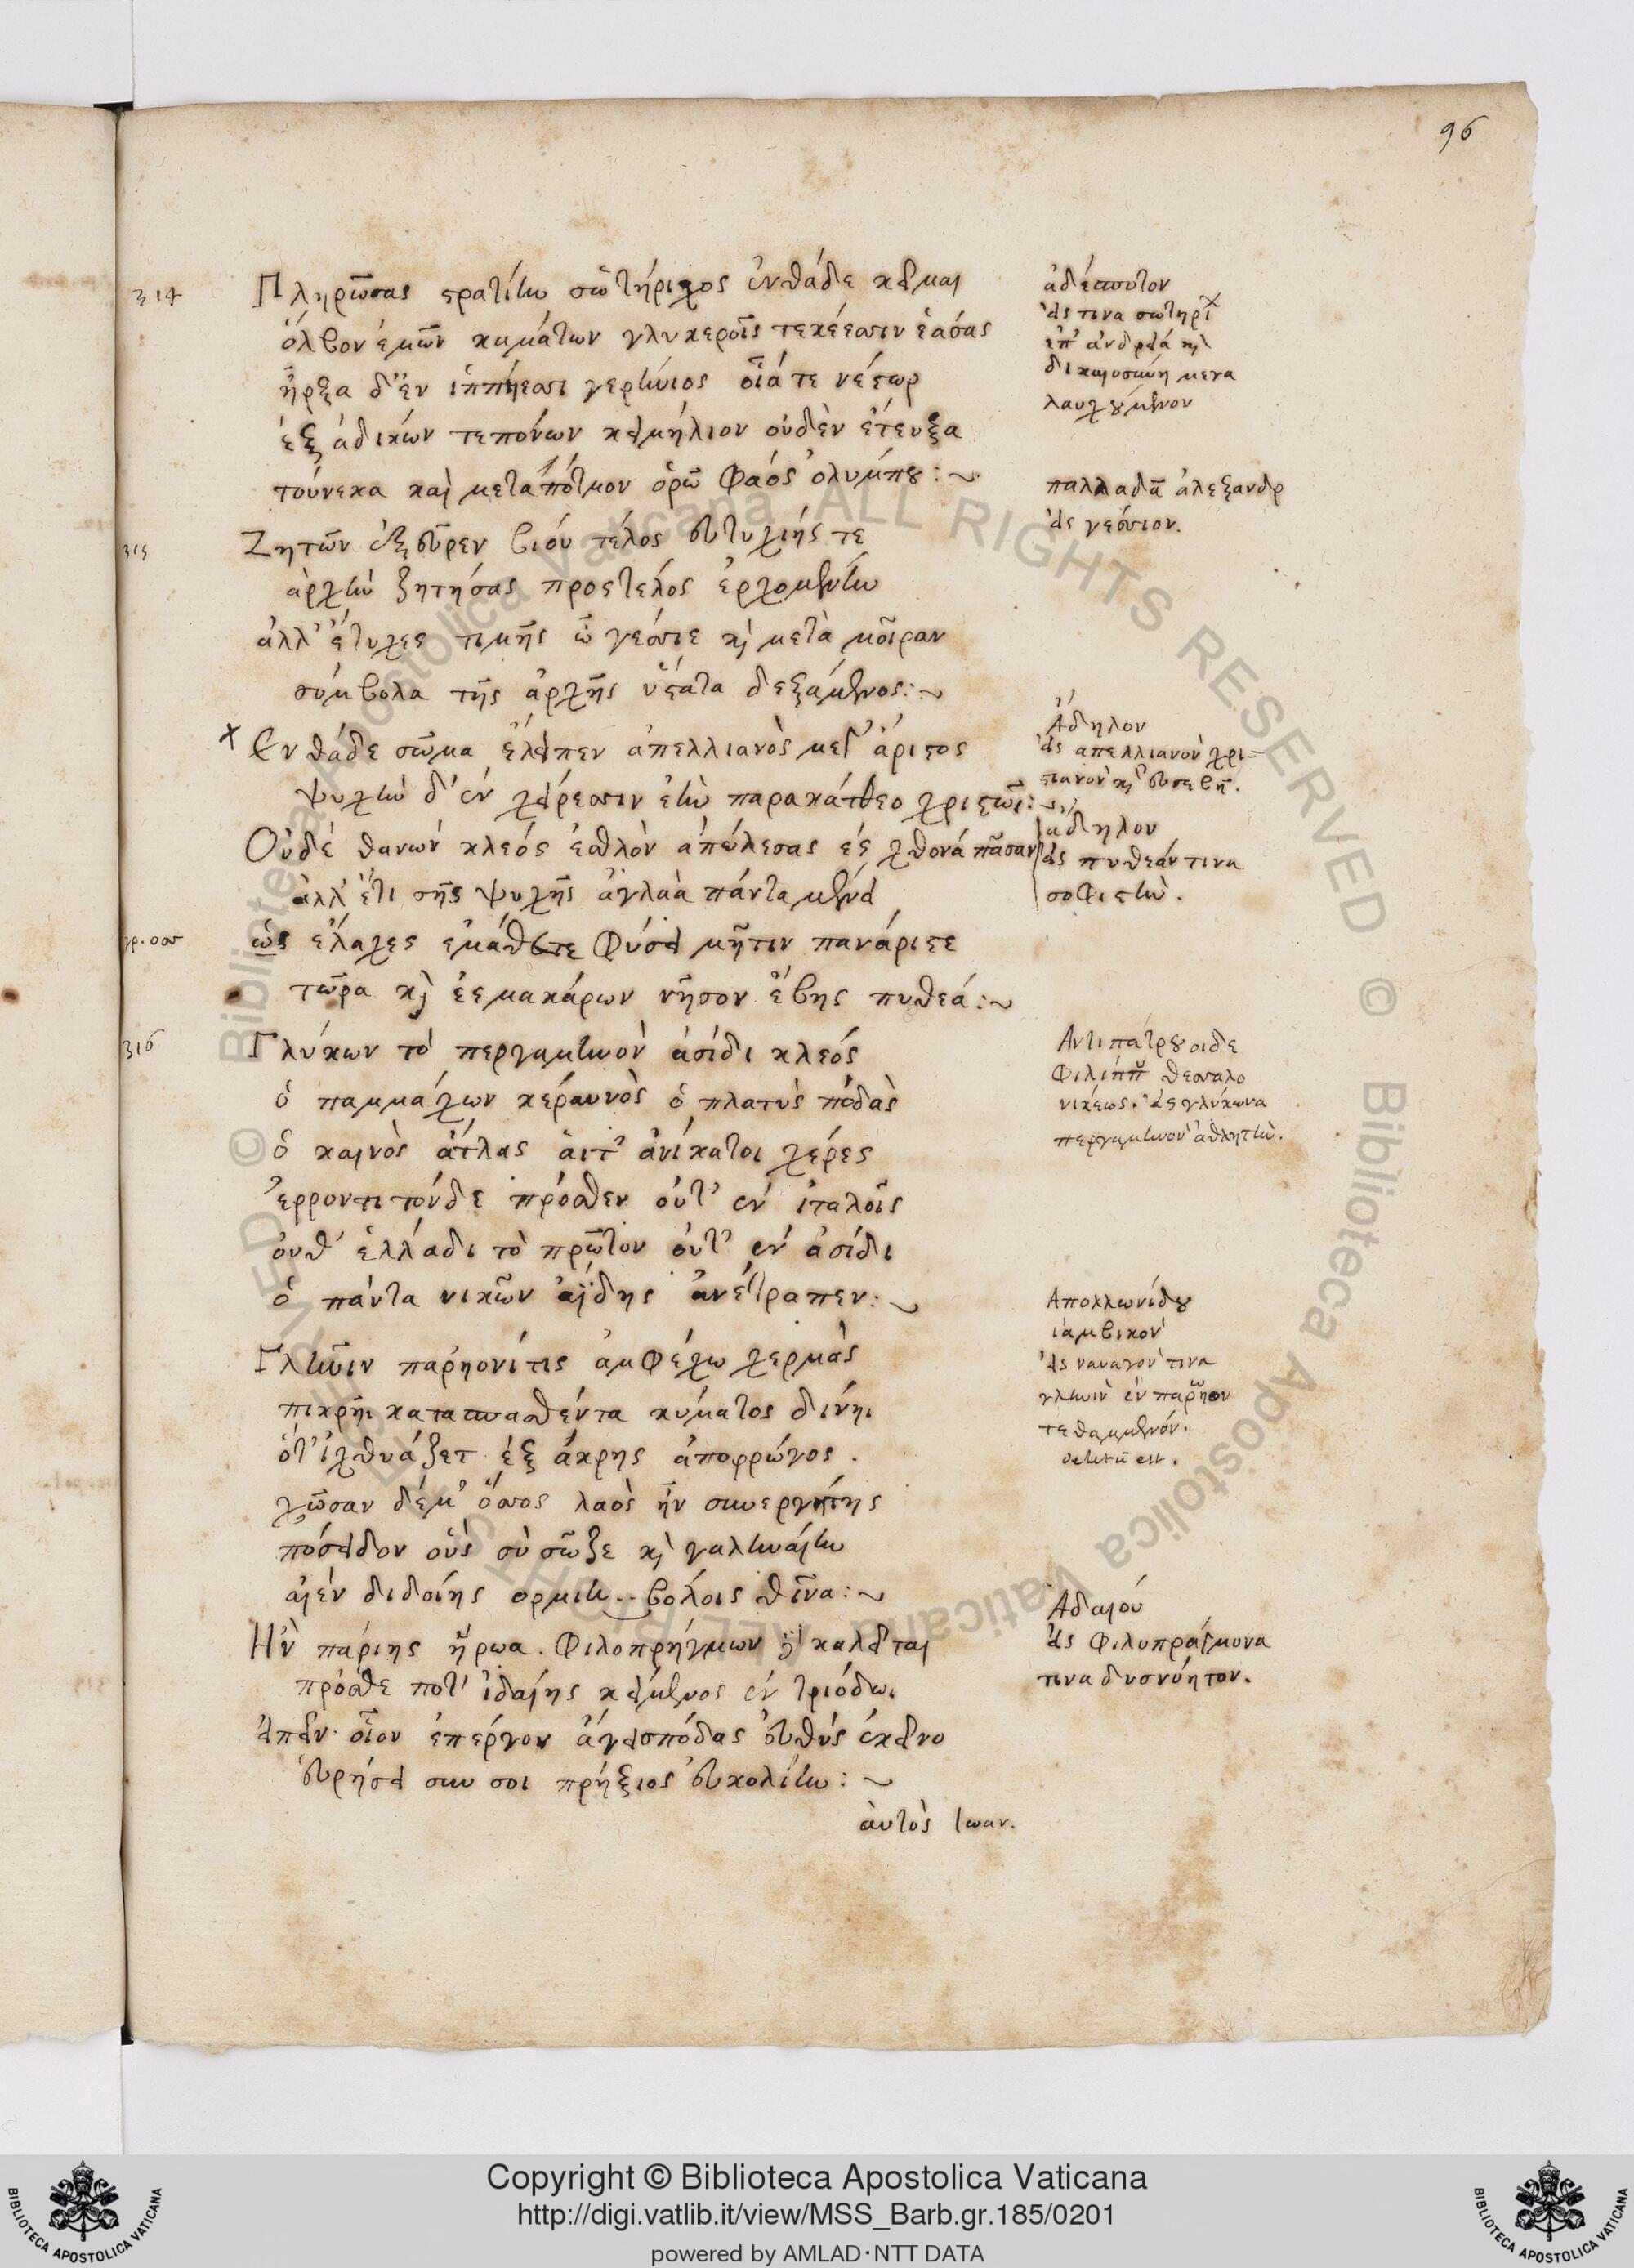 96
314
Πληρώσας στρατίην σωτήριχος ἐνθάδε κεῖμαι
ὄλβον ἐμῶν καμάτων γλυκεροῖς τεκέεσσιν ἐάσας
ἦρξα δ' ἐν ἱππήεσσι γερήνιος οἷά τε νέστωρ
ἐξ ἀδίκων τε πόνων κειμήλιον οὐδὲν ἔτευξα
τούνεκα καὶ μετὰ πότμον ὁρῶ φάος ὀλύμπου:~
ἀδέσποτον
εἰς τινα σωτήριχ
ἐπ' ἀνδρεία κὶ
δικαιοσύνη μεγα
λαυχούμενον
315
Ζητῶν ἐξεῦρεν βιόυ τέλος εὐτυχιής τε
ἀρχὴν ζητήσας προς τέλος ἐρχομένην
ἀλλ' ἔτυχες τιμῆς ὦ γέσσιε κὶ μετὰ μοῖραν
σύμβολα τῆς ἀρχῆς ὕστατα δεξάμενος:~
παλλαδᾶ ἀλεξανδρ
εἰς γέσσιον.
x Ενθάδε σῶμα ἔλειπεν ἀπελλιανὸς μετ' ἄριστος
ψυχὴν δ' ἐν χείρεσσιν ἑὴν παρακάτθεο χριστῶι:~
Ἄδηλον
εἰς απελλιανὸν χρι-
στιανὸν κὶ εὐσεβῆ.
Οὐδὲ θανών κλεός ἐσθλὸν ἀπώλεσας ἐς χθονά πᾶσαν
ἀλλ' ἔτι σῆς ψυχῆς ἀγλαὰ πάντα μένει
γρ. οσσ
ὡς ἔλαχες ἐμάθετε φύσει μῆτιν πανάριστε
τῶρα κὶ ἐς μακάρων νῆσον ἔβης πυθεά:~
ἄδηλον
εἰς πυθεάν τινα
σοφιστὴν.
316
Γλύκων τὸ περγαμηνὸν ἀσίδι κλεός
ὁ παμμάχων κέραυνὸς ὁ πλατὺς πόδας
ὁ καινὸς ἄτλας ἁιτ' ἀνίκατοι χέρες
ἔρροντι τόνδε πρόσθεν οὐτ' ἐν ἰταλοῖς
οὐθ' ἑλλάδι τὸ πρῶτον ὀυτ' ἐν ἀσίδι
ὁ πάντα νικῶν ἀΐδης ἀνέτραπεν:~
Αντιπάτρου οιδε
Φιλίππου θεσσαλο
νικέως. εἰς γλύκωνα
περγαμηνὸν ἀθλητὴν.
Γληνῖν παρηονῖτις ἀμφέχω χερμὰς
πικρῆι κατασπασθέντα κύματος δίνηι
ὁτ' ἰχθυάζετ ἐξ ἄκρης ἀπορρώγος.
χῶσαν δέ μ' ὅσσος λαὸς ἦν συνεργήτης
πόσειδον οὓς σὺ σῶζε κὶ γαληναίην
αἰέν διδοίης ορμιη..βόλοις θῖνα:~
Απολλωνίδου
ἰαμβικὸν
εἰς ναυαγὸν τινα
γληνὶν ἐν παρηον
τεθαμμενόν.
deletũ est.
Ην πάριης ἥρωα. Φιλοπρήγμων καλεῖται
πρόσθε ποτ' ἰδαίης κείμενος ἐν τριόδωι
εἰπεῖν· οἷον ἐπ' ἔργον ἄγεις πόδας εὐθὺς ἐκεῖνο
εὑρήσει συν σοι πρήξιος εὐκολίην:~
Ἀδαιόυ
εἰς Φιλοπράγμονα
τινα δυσνόητον.
ἀυτὸς Ιωαν.
Copyright © Biblioteca Apostolica Vaticana
http://digi.vatlib.it/view/MSS_Barb.gr.185/0201
powered by AMLAD·NTT DATA
BIBLIOTECA APOSTOLICA VATICANA
BIBLIOTECA APOSTOLICA VATICANA
© Biblioteca Apostolica Vaticana ALL RIGHTS RESERVED © Biblioteca Apostolica Vaticana ALL RIGHTS RESERVED